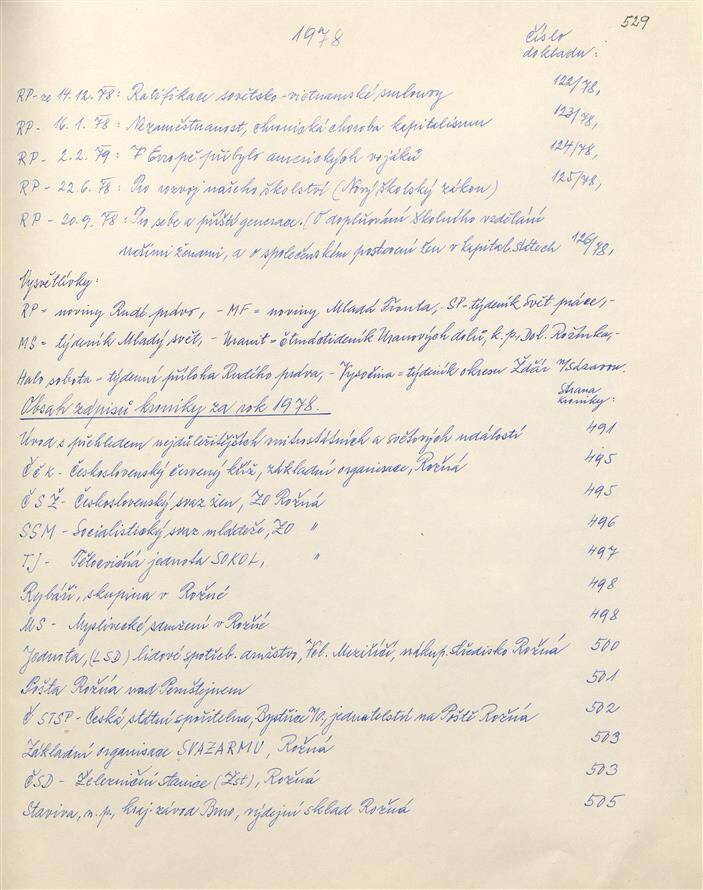 529
1978
Číslo
dokladu:
RP- ze 14.12.78: Ratifikace sovětsko-vietnamské smlouvy 122/78,
RP - 16.1.78: Nezaměstnanost, chronická choroba kapitalismu 123/78,
RP - 2.2.79: V Evropě přibylo amerických vojáků 124/78,
RP - 22.6.78: Pro rozvoj našeho školství (Nový školský zákon) 125/78,
RP - 20.9.78: Pro sebe a příští generace. (O doplňování školního vzdělání
našimi ženami, a o společenském postavení žen v kapital. státech 126/78,
Vysvětlivky:
RP = noviny Rudé právo, - MF = noviny Mladá Fronta, - SP- týdeník Svět práce, -
MS = týdeník Mladý svět, - Uranit = čtnáctideník Uranových dolů, k.p, Dol. Rožínka, -
Halo sobota - týdenní příloha Rudého práva, - Vysočina = týdeník okresu Žďár n/Sázavou.
Obsah zápisů kroniky za rok 1978. Strana
kroniky:
Úvod s přehledem nejdůležitějších vnitrostátních a světových událostí 491
Č č k - Československý červený kříž, základní organisace, Rožná 495
Č S Ž - Československý svaz žen, ZO Rožná 495
SSM - Socialistický svaz mládeže, ZO " 496
T.J - Tělocvičná jednota SOKOL, " 497
Rybáři, skupina v Rožné 498
MS - Myslivecké sdružení v Rožné 498
Jednota, (LSD) lidové spotřeb. družstvo, Vel. Meziříčí, nákup. středisko Rožná 500
Pošta Rožná nad Pernštejnem 501
Č STSP - Česká státní spořitelna, Bystřice n/P, jednatelství na Poště Rožná 502
Základní organisace SVAZARMU, Rožná 503
ČSD - Železniční stanice (Žst), Rožná 503
Staviva, n.p., kraj. závod Brno, výdejní sklad Rožná 505